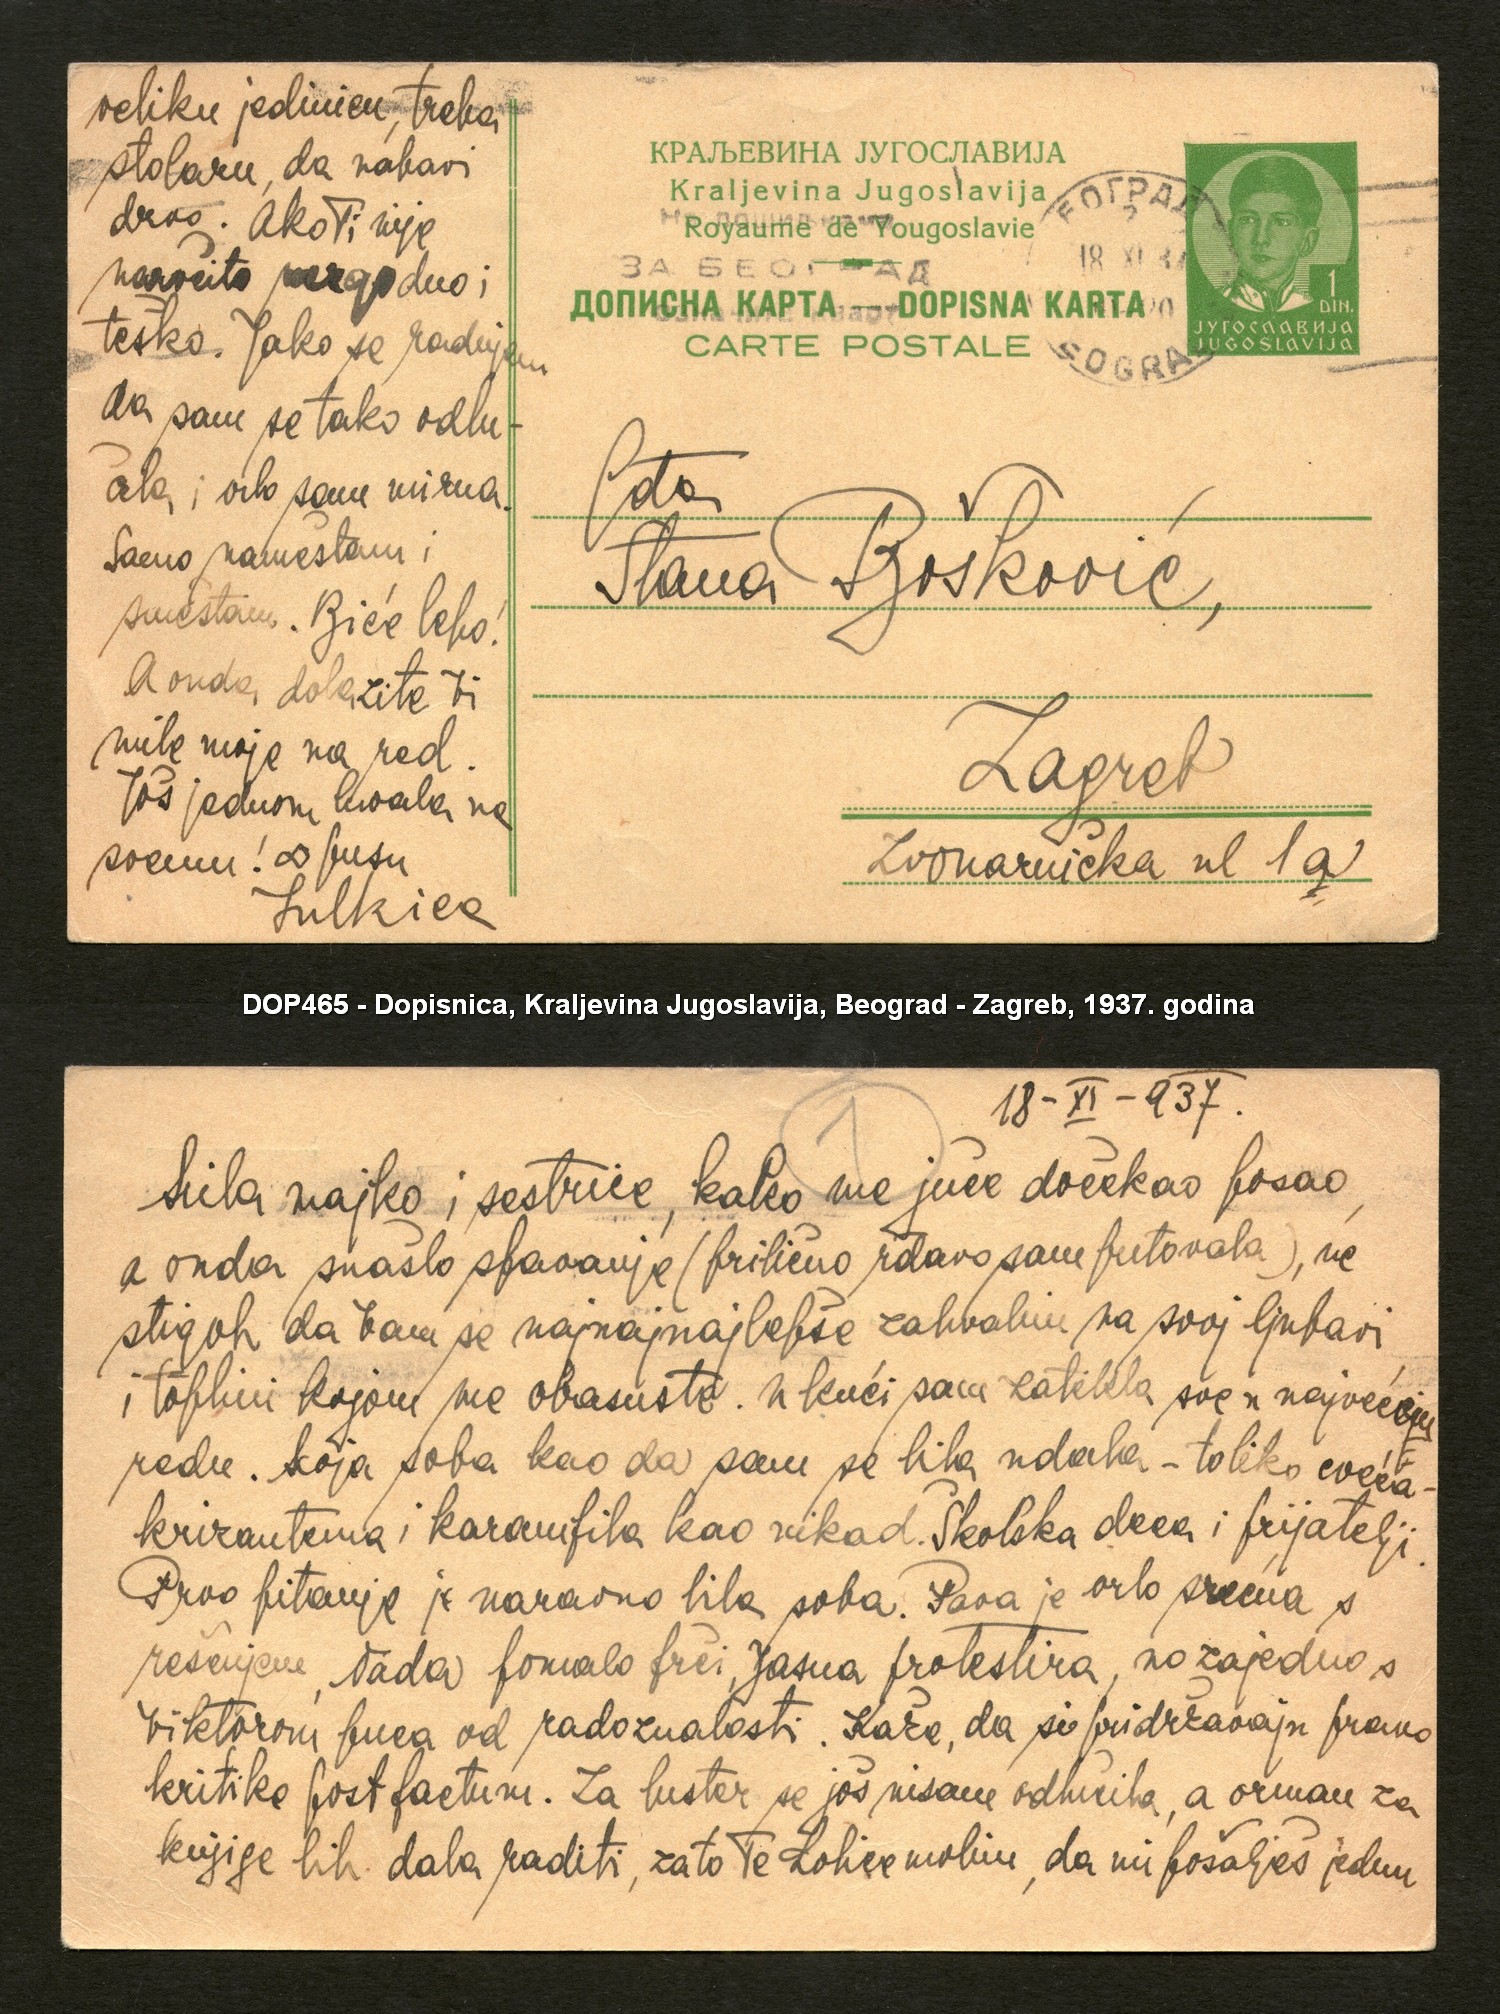 veliku jedinicu, treba
stolaru, da nabavi
drvo. Ako Ti nije
naročito nezgodno i
teško. Jako se radujem
da sam se tako odlu-
čila i vrlo sam mirna.
Samo nameštam i
smeštam. Biće lepo!
A onda dolazite Vi
mile moje na red.
Još jednom hvala na
svemu! ∞ pusu
Zulkica
КРАЉЕВИНА ЈУГОСЛАВИЈА
Kraljevina Jugoslavija
Royaume de Yougoslavie
ЗА БЕОГРАД
ДОПИСНА КАРТА — DOPISNA KARTA
CARTE POSTALE
БЕОГРАД 2
18 XI 37
20
BEOGRAD
1
DIN.
ЈУГОСЛАВИЈА
JUGOSLAVIJA
Gđa
Slava Bošković,
Zagreb
Zvonarnička ul 1a
DOP465 - Dopisnica, Kraljevina Jugoslavija, Beograd - Zagreb, 1937. godina
1
18-XI-937.
Mila majko i sestrice, kako me juče dočekao posao,
a onda snašlo spavanje (prilično rđavo sam putovala), ne
stigoh da Vam se najnajnajlepše zahvalim na svoj ljubavi
i toplini kojom me obasuste. U kući sam zatekla sve u najvećem
redu. Moja soba kao da sam se bila udala - toliko cveća -
krizantema i karamfila kao nikad. Školska deca i prijatelji.
Prvo pitanje je naravno bila soba. Pava je vrlo srećna s
rešenjem, Nada pomalo prči, Jasna protestira, no zajedno s
Viktorom puca od radoznalosti. Kaže, da si pridržavaju pravo
kritike post factum. Za luster se još nisam odlučila, a orman za
knjige bih dala raditi, zato Te molim, da mi pošalješ jednu